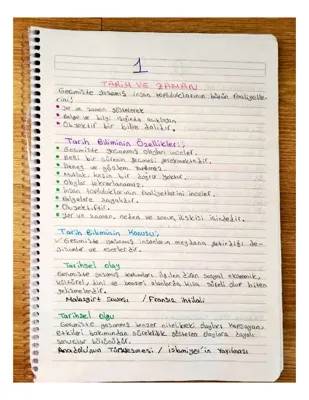 1
TARİH VE ZAMAN
Geçmişte yaşamış insan topluluklarının bütün faaliyetle-
rini;
• Yer ve zaman göstererek
• Belge ve bilgi ışığında açıklayan
• Objektif bir bilim dalıdır.
Tarih Biliminin Özellikleri;
• Geçmişte yaşanmış olayları inceler.
• Belli bir sürenin geçmesi gerekmektedir.
• Deney ve gözlem yapılmaz.
• Mutlak, kesin bir doğru yoktur.
• Olaylar tekrarlanamaz.
• İnsan topluluklarının faaliyetlerini inceler.
• Belgelere dayalıdır.
• Objektiftir.
• Yer ve zaman, neden ve sonuç ilişkisi içindedir.
Tarih Biliminin Konusu;
Geçmişte yaşamış insanların meydana getirdiği de-
ğişimler ve eserlerdir.
Tarihsel olay
Geçmişte yaşamış toplumları ilgilendiren sosyal ekonomik,
kültürel, dini ve benzeri alanlarda kısa süreli olup biten
gelişmelerdir.
Malazgirt Savaşı / Fransız İhtilali
Tarihsel olgu
Geçmişte yaşanmış benzer nitelikteki olayları kapsayan,
etkileri bakımından süreklilik gösteren olaylara dayalı
sonuçlar bütünüdür.
Anadolu'nun Türkleşmesi / İslamiyet'in Yayılması